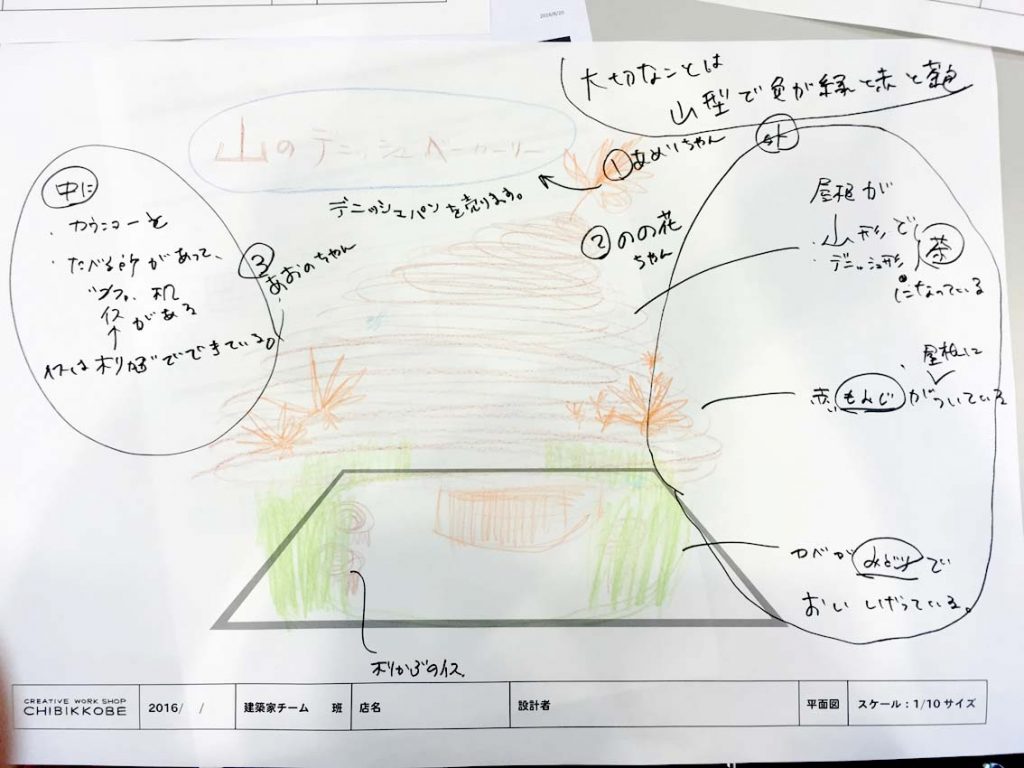 大切なことは
山型で色が緑と赤と茶色
山のデニッシュベーカーリー
①あめりちゃん
デニッシュパンを売ります。
②のの花
ちゃん
③
あおのちゃん
中に
・カウンターと
・たべる所があって、
ソファ、机
イス がある
↑
イスは木り株でできている。
外
屋根が
・山形で
・デニッシュ形
茶
になっている
・屋根に
赤いもみじがついている
カベがみどりで
おいしげっている。
木りかぶのイス
CREATIVE WORK SHOP
CHIBIKKOBE
2016/ /
建築家チーム 班
店名
設計者
平面図
スケール:1/10 サイズ